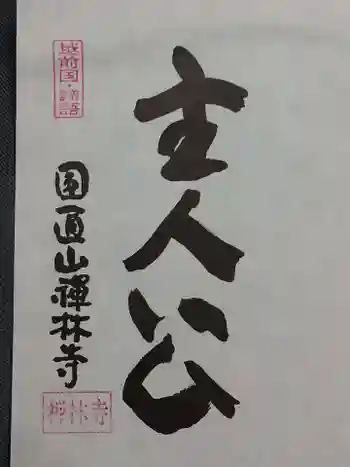 主人公
越前国・禅語
圓通山禅林寺
禅林寺